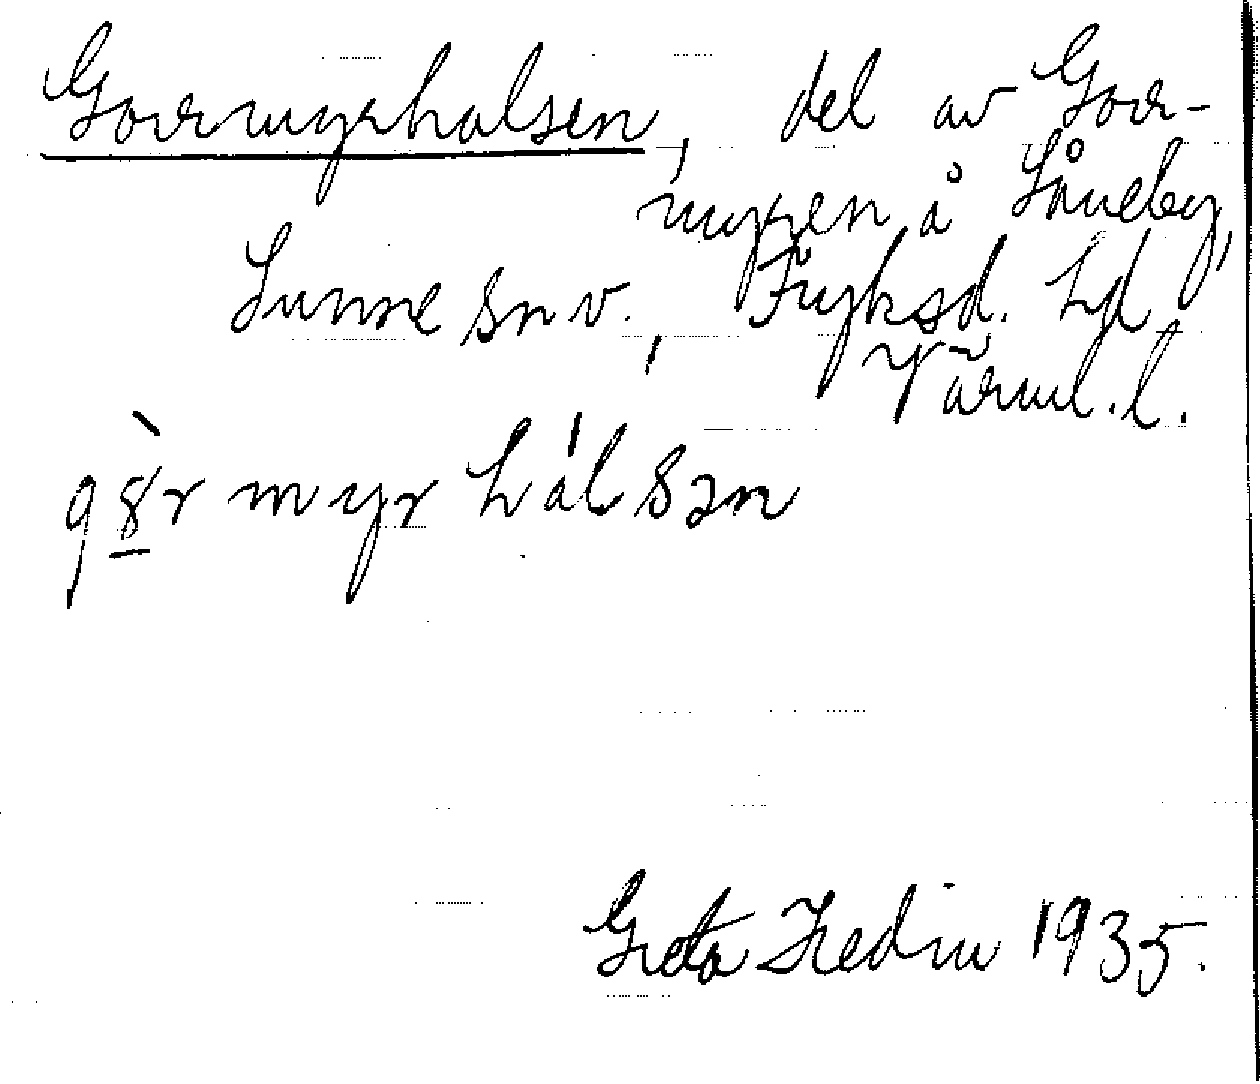 Gorrmyrhalsen, del av Gorr-
myren å Såneby,
Sunne sn v., Fryksd. hd,
Värml. l.
gȣ̀r myr hálsən
Greta Hedin 1935.